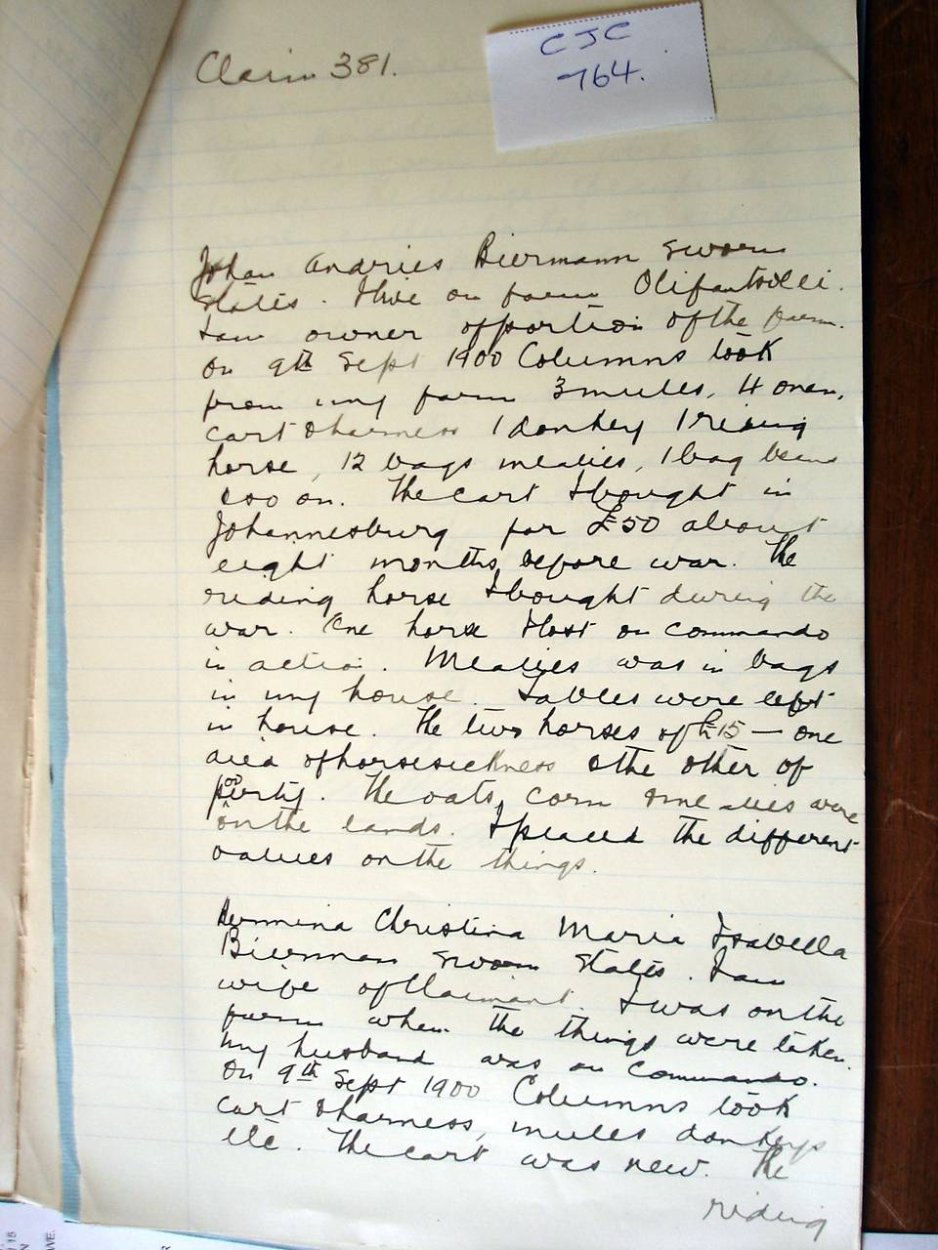 CJC
764.
Claim 381.
Johan Andries Biermann Sworn
States. I live on farm Olifantsvlei.
I am owner of portion of the farm.
On 9th Sept 1900 Columns took
from my farm 3 mules, 4 oxen,
cart & harness 1 donkey 1 riding
horse, 12 bags mealies, 1 bag beans
& so on. The cart I bought in
Johannesburg for £50 about
eight months before war. The
riding horse I bought during the
war. One horse I lost on commando
in action. Mealies was in bags
in my house. Tables were left
in house. The two horses of £15 — one
died of horsesickness & the other of
The oats, corn & mealies were
on the lands. I placed the different
values on the things.
Hermina Christina Maria Isabella
Bierman sworn States. I am
wife of Claimant. I was on the
farm when the things were taken.
My husband was on Commando.
On 9th Sept 1900 Columns took
cart & harness, mules donkeys
etc. The cart was new. The
riding